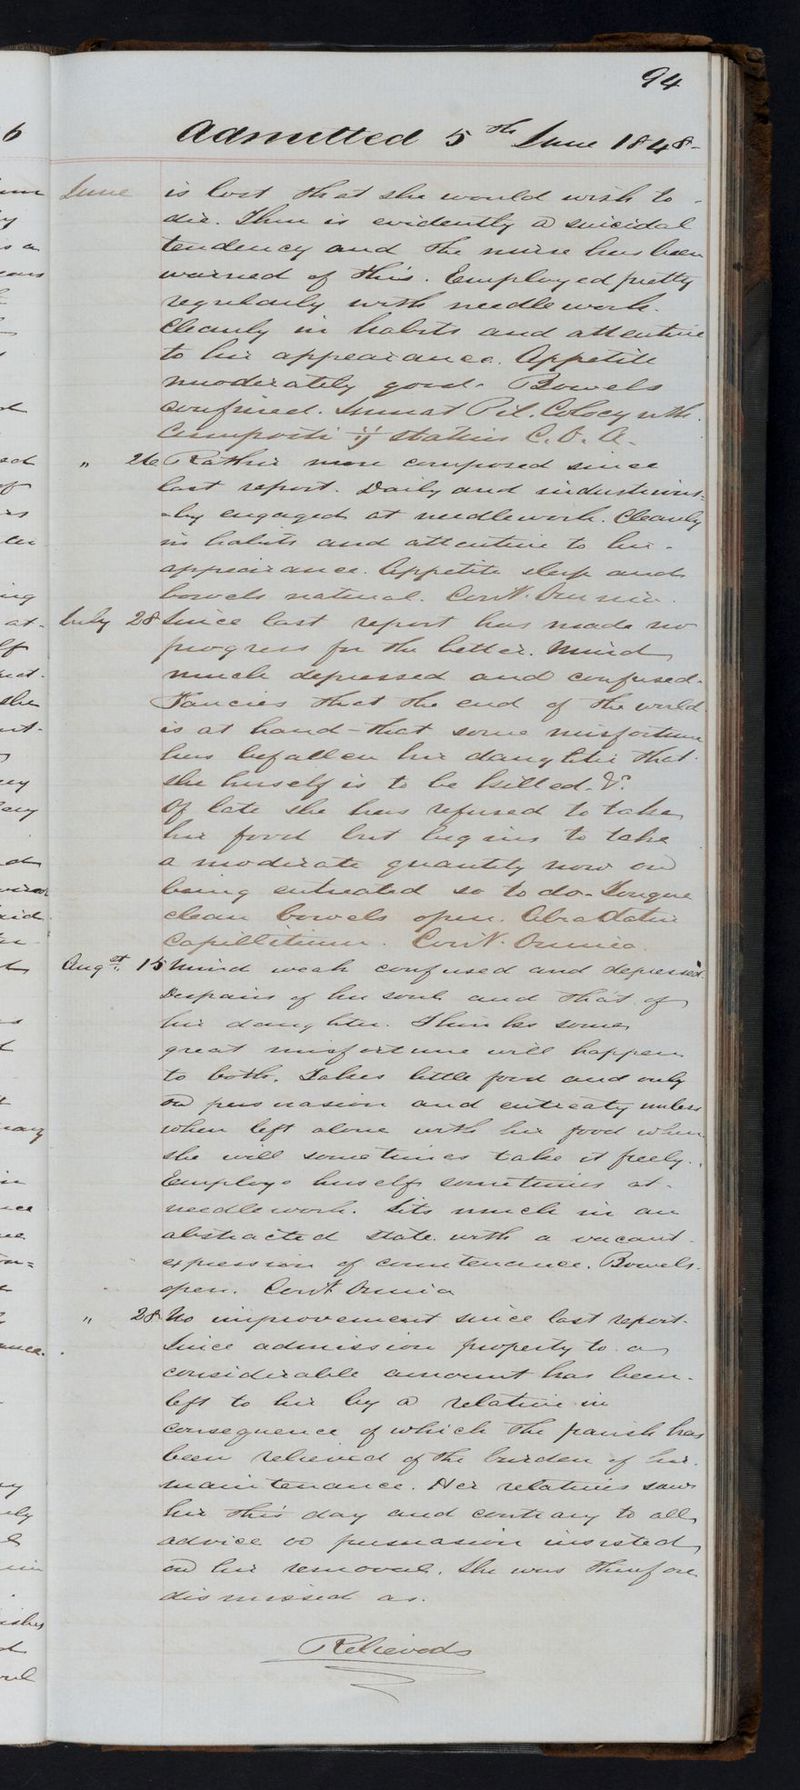 94
Admitted 5th June 1848-
June is lost that she would wish to
die. There is evidently a suicidal
tendency and the nurse has been
warned of this. Employed pretty
regularly with needlework.
Cleanly in habits and attentive
to her appearance. Appetite
moderately good. Bowels
confined. Sumat Pil. Colocynth.
Compositi ij statim C.O.A.
" 26 Rather more composed since
last report. Daily and industrious=
-ly engaged at needlework. Cleanly
in habits and attentive to her
appearance. Appetite sleep and
bowels natural. Cont. Omnia.
July 28 Since last report has made no
progress for the better. Mind
much depressed and confused.
Fancies that the end of the world
is at hand - that some misfortune
has befallen her daughter that
she herself is to be killed. &c.
Of late she has refused to take
her food but begins to take
a moderate quantity now on
being entreated so to do. Tongue
clean bowels open. Abradatur
Capillitium. Cont. Omnia.
Augst. 15 Mind weak confused and depressed.
Despairs of her soul and that of
her daughter. Thinks some
great misfortune will happen
to both. Takes little food and only
on persuasion and entreaty unless
when left alone with her food when
she will sometimes take it freely.
Employs herself sometimes at
needlework. Sits much in an
abstracted state with a vacant
expression of countenance. Bowels
open. Cont Omnia
" 28 No improvement since last report.
Since admission property to a
considerable amount has been
left to her by a relative in
consequence of which the parish has
been relieved of the burden of her
maintenance. Her relatives saw
her this day and contrary to all
advice or persuasion insisted
on her removal. She was therefore
dismissed as.
Relieved